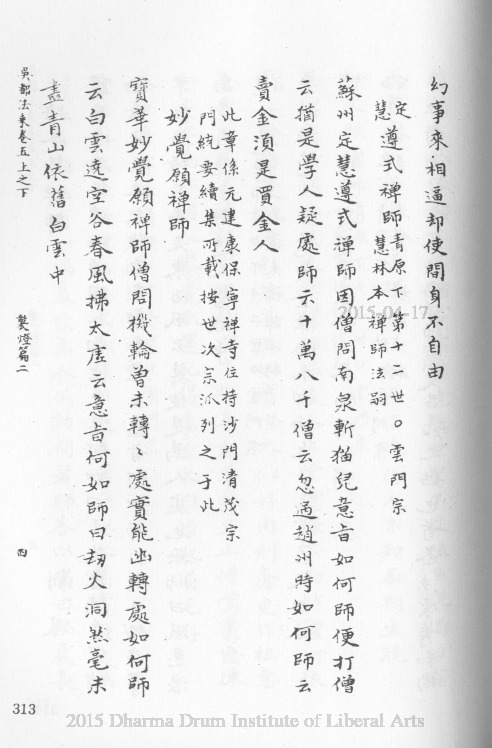 幻事來相逼却使閒身不自由
定慧遵式禪師青原下第十二世○雲門宗
慧林本禪師法嗣
蘇州定慧遵式禪師因僧問南泉斬猫兒意旨如何師便打僧
云猶是學人疑處師云十萬八千僧云忽遇趙州時如何師云
賣金須是買金人
此章係元建康保寧禪寺住持沙門清茂宗
門統要續集所載按世次宗派列之于此
妙覺願禪師
寶華妙覺願禪師僧問機輪曾未轉〻處實能幽轉處如何師
云白雲迷空谷春風拂太虛云意旨何如師曰劫火洞然毫末
盡青山依舊白雲中
吳都法乘卷五上之下
襲燈篇二
四
313
2015-04-17
2015 Dharma Drum Institute of Liberal Arts